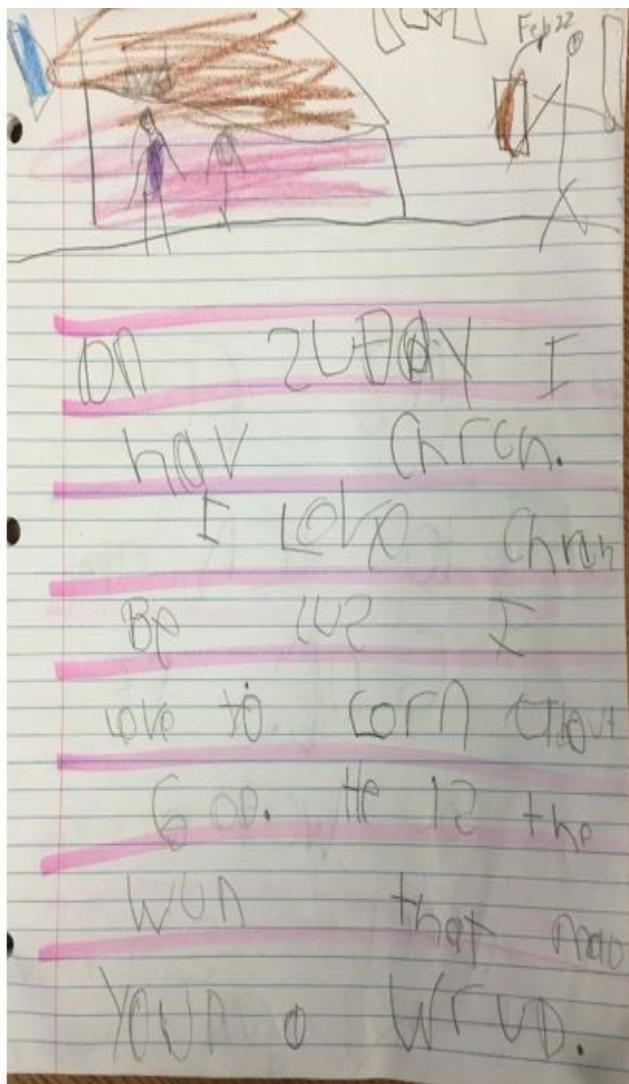 Feb 22
on SUNDAY I
hav Chrch.
I Love Chrch
Be cus I
love to lorn about
GOD. He is the
wun that mad
YOUN a Wrud.